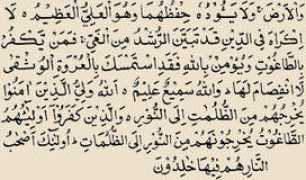 الْاَرْضَ ۚ وَلَا يَـُٔوْدُهٗ حِفْظُهُمَا وَهُوَ الْعَلِيُّ الْعَظِيْمُ ○ لَا
اِكْرَاهَ فِي الدِّيْنِ قَدْ تَّبَيَّنَ الرُّشْدُ مِنَ الْغَيِّ ۚ فَمَنْ يَّكْفُرْ
بِالطَّاغُوْتِ وَيُؤْمِنْ بِاللّٰهِ فَقَدِ اسْتَمْسَكَ بِالْعُرْوَةِ الْوُثْقٰى
لَا انْفِصَامَ لَهَا ۗ وَاللّٰهُ سَمِيْعٌ عَلِيْمٌ ○ اَللّٰهُ وَلِيُّ الَّذِيْنَ اٰمَنُوْا
يُخْرِجُهُمْ مِّنَ الظُّلُمٰتِ اِلَى النُّوْرِ ۗ وَالَّذِيْنَ كَفَرُوْٓا اَوْلِيٰٓـُٔهُمُ
الطَّاغُوْتُ يُخْرِجُوْنَهُمْ مِّنَ النُّوْرِ اِلَى الظُّلُمَاتِ ۗ اُولٰٓئِكَ اَصْحٰبُ
النَّارِ هُمْ فِيْهَا خٰلِدُوْنَ